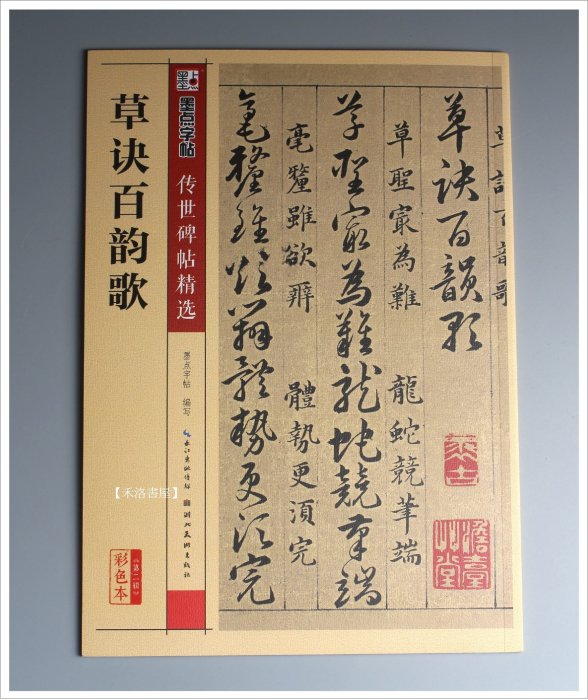 草诀百韵歌
墨点
墨点字帖
传世碑帖精选
墨点字帖 编写
长江出版传媒
湖北美术出版社
【禾洛書屋】
彩色本
《第二辑》
草訣百韻歌
草诀百韻歌
草聖寂為難 龍蛇競筆端
草聖寂為難龍蛇競筆端
毫釐雖欲辨 體勢更須完
毫釐雖欲辨體勢更須完